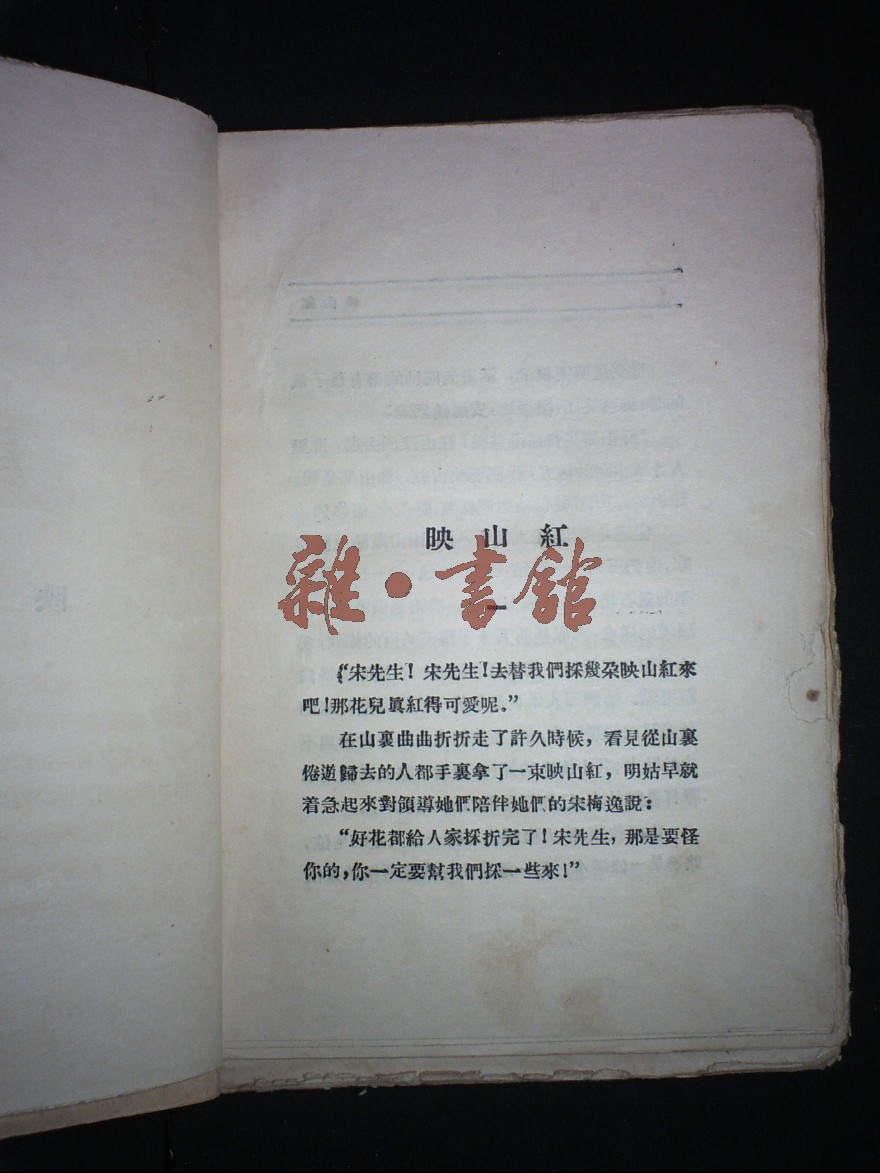 映山紅
雜·書館
一
“宋先生！宋先生！去替我們採幾朶映山紅來
吧！那花兒眞紅得可愛呢。”
在山裏曲曲折折走了許久時候，看見從山裏
倦遊歸去的人都手裏拿了一束映山紅，明姑早就
着急起來對領導她們陪伴她們的宋梅逸說：
“好花都給人家採折完了！宋先生，那是要怪
你的，你一定要幫我們採一些來！”